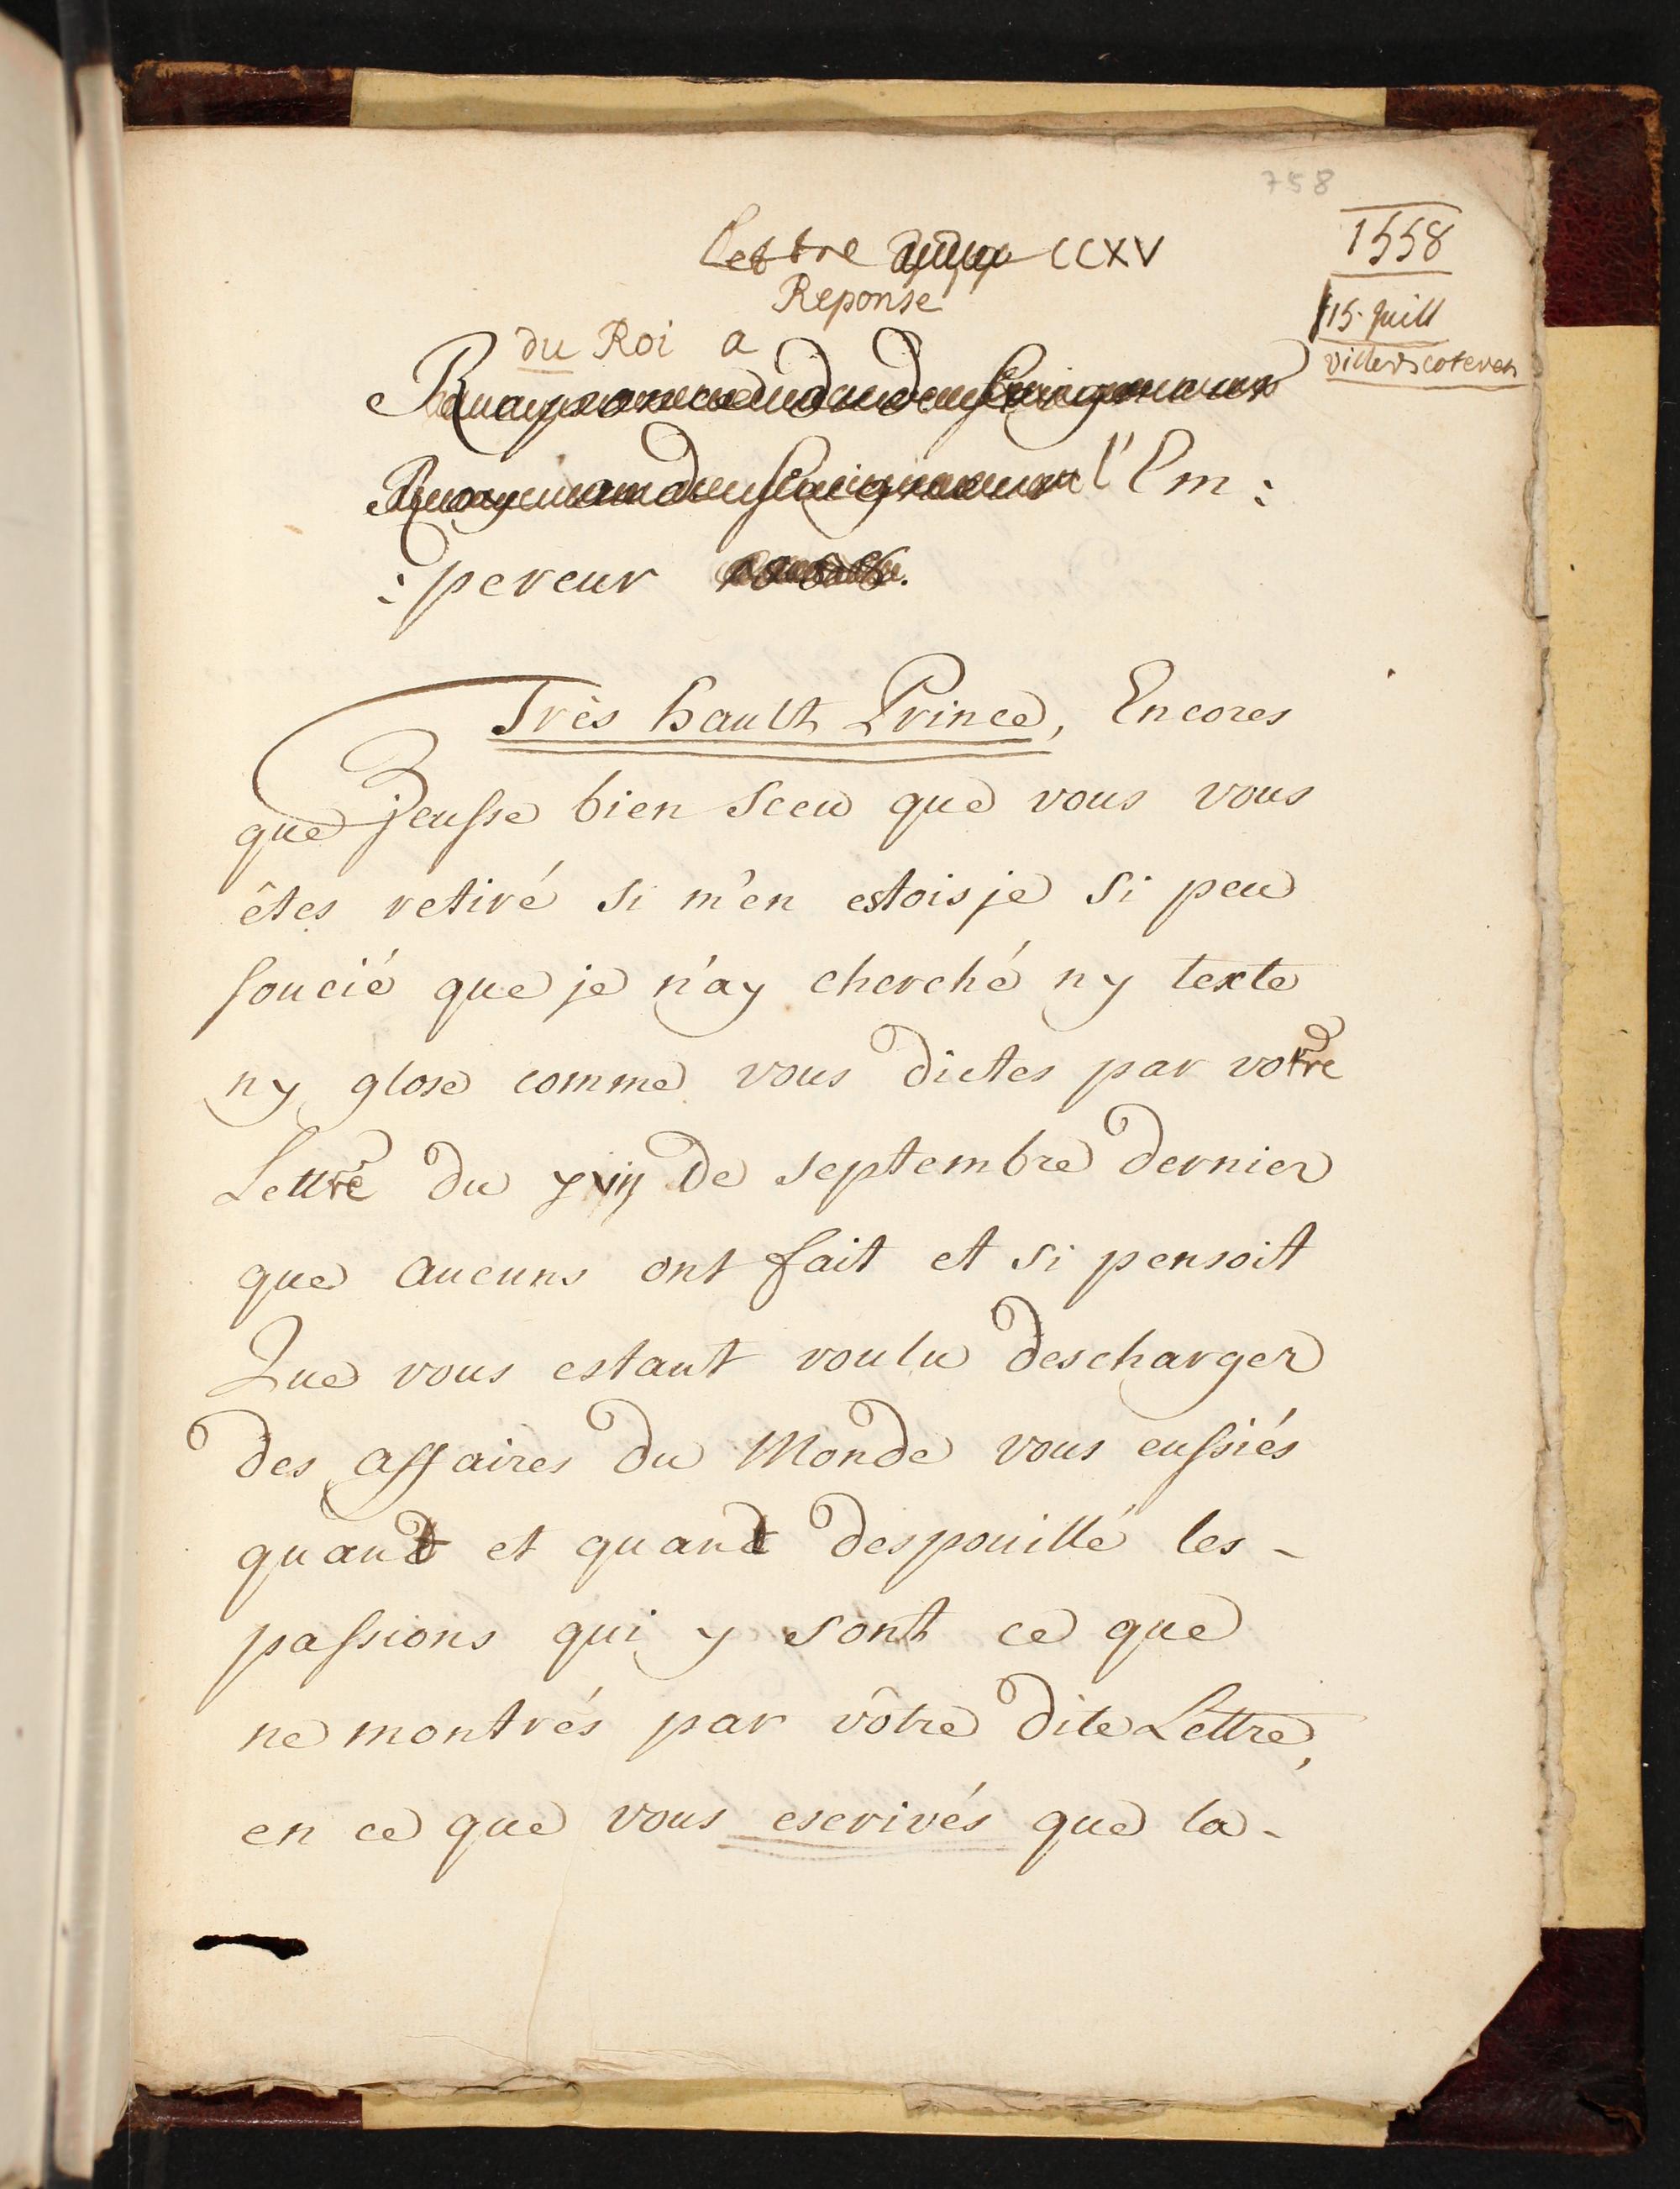 758
1558
Lettre CCXV
15. Juill
Reponse
villers coterets
du Roi a
l'Em:
:pereur
Très hault Prince, Encores
que Jeusse bien sceu que vous vous
êtes retiré si m'en estois je si peu
soucié que je n'ay cherché ny texte
ny glose comme vous dictes par votre
Lettre du xviij de septembre dernier
que aucuns ont fait et si pensoit
Que vous estant voulu descharger
des affaires du Monde vous eussiés
quand et quand despouillé les-
passions qui y sont ce que
ne montrés par vôtre dite Lettre,
en ce que vous escrivés que la-